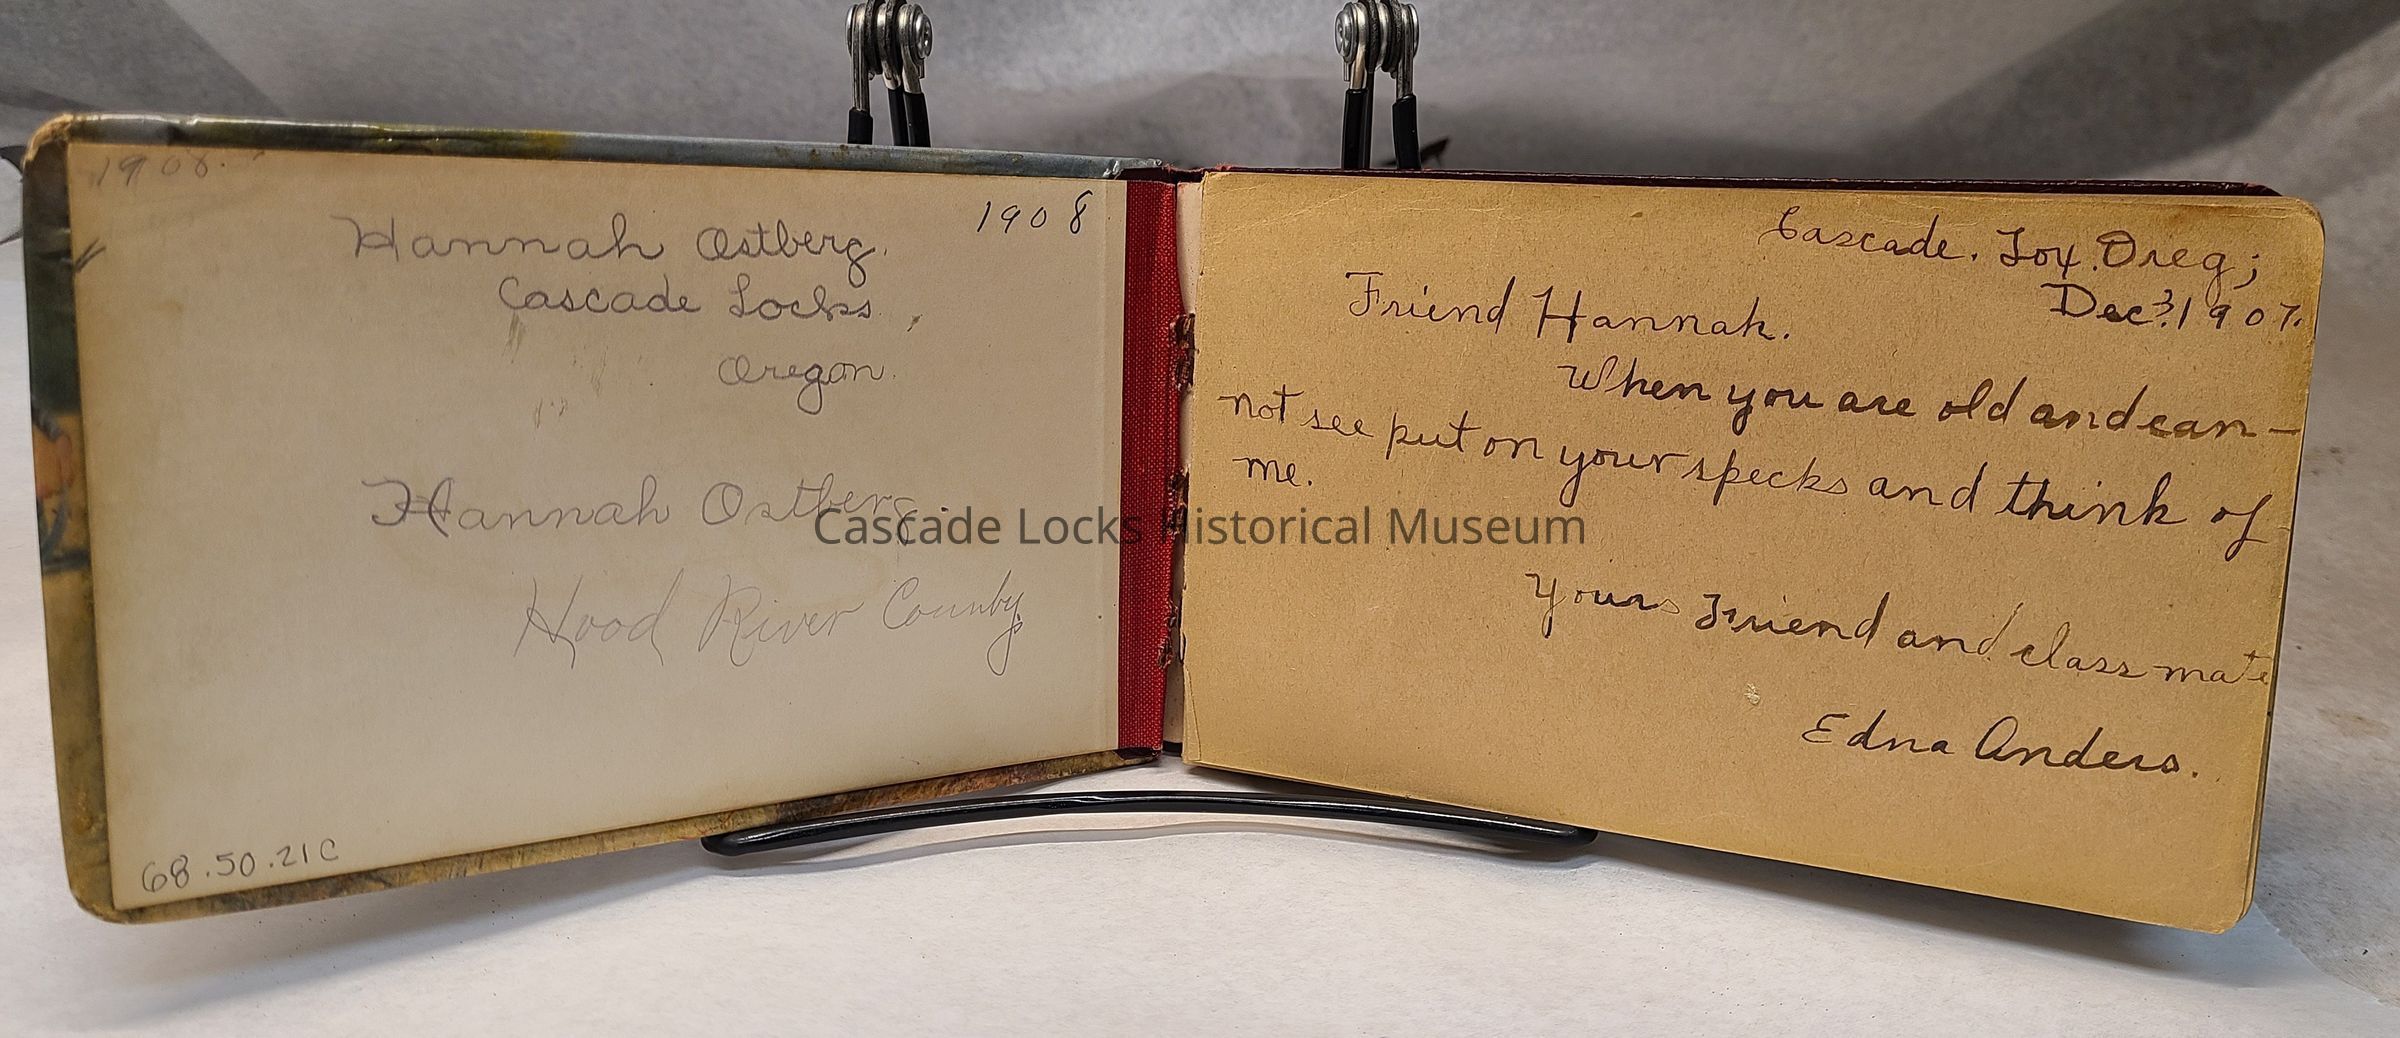 1908.
1908
Hannah Ostberg.
Cascade Locks.
Oregon.
Hannah Ostberg.
Hood River County
68.50.21C
Cascade. Lox. Oreg;
Dec. 3. 1907.
Friend Hannah.
When you are old and can-
not see put on your specks and think of
me.
Yours Friend and class mate
Edna Anders.
Cascade Locks Historical Museum